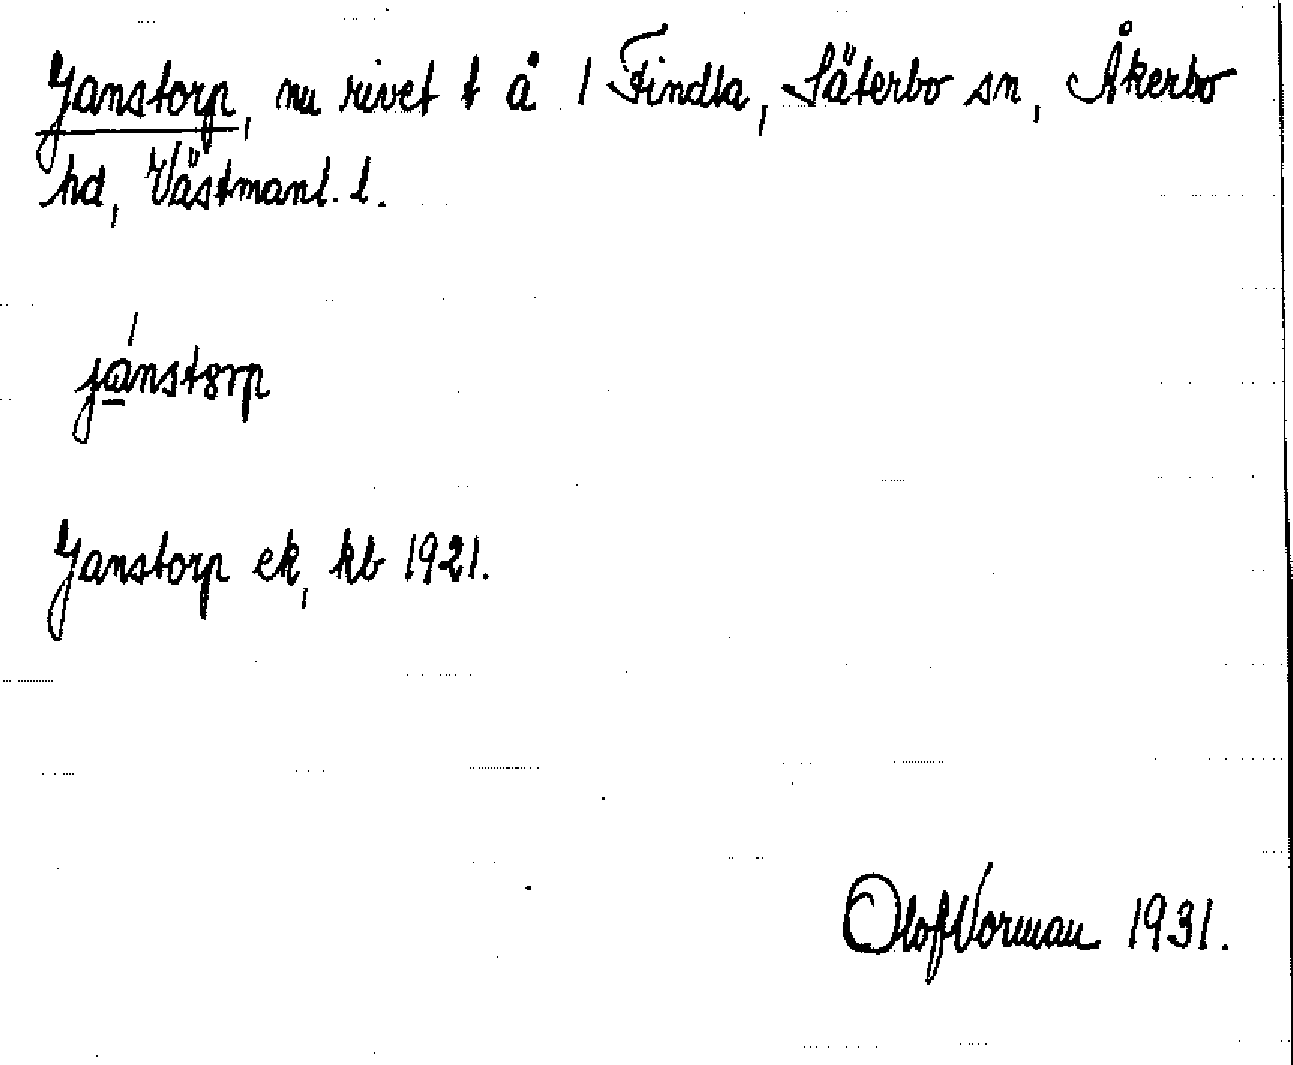 Janstorp, nu rivet t å 1 Findla, Säterbo sn, Åkerbo
hd, Västmanl. l.
jánstorp
Janstorp ek, kb 1921.
Olof Vorman 1931.